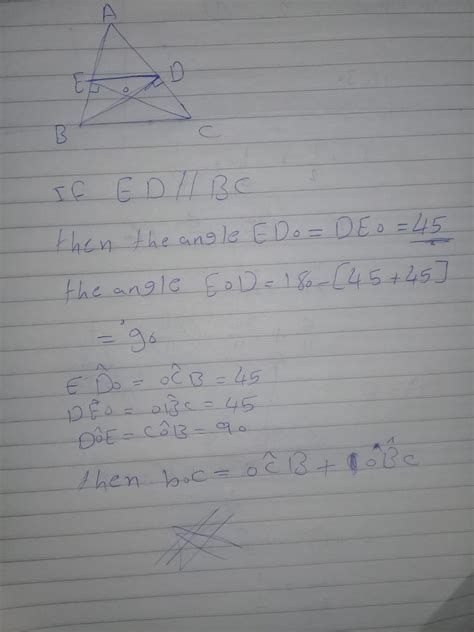 A
E D
o
B C
If ED//BC
then the angle EDo = DEo = 45
the angle EoD = 180 - [45+45]
= 90
ED̂o = oĈB = 45
DÊo = oB̂c = 45
DôE = CôB = 90
then boc = oĈB + oB̂c